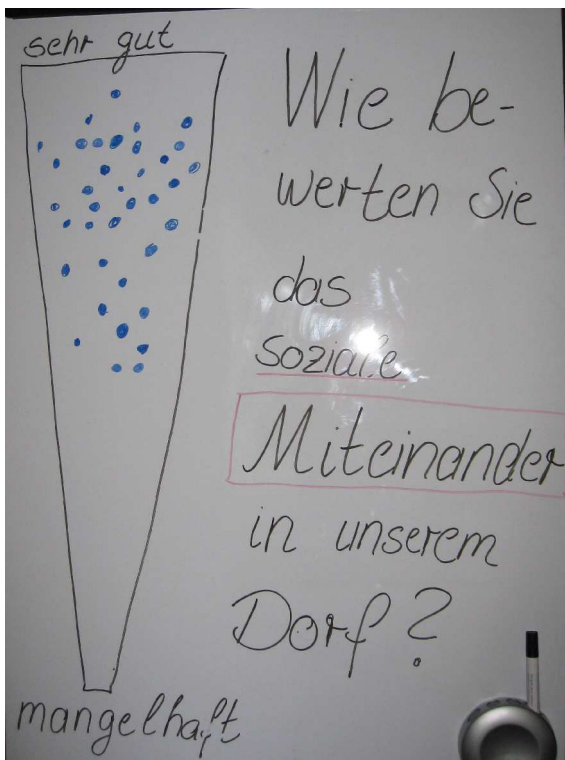 sehr gut
Wie be-
werten Sie
das
soziale
Miteinander
in unserem
Dorf?
mangelhaft